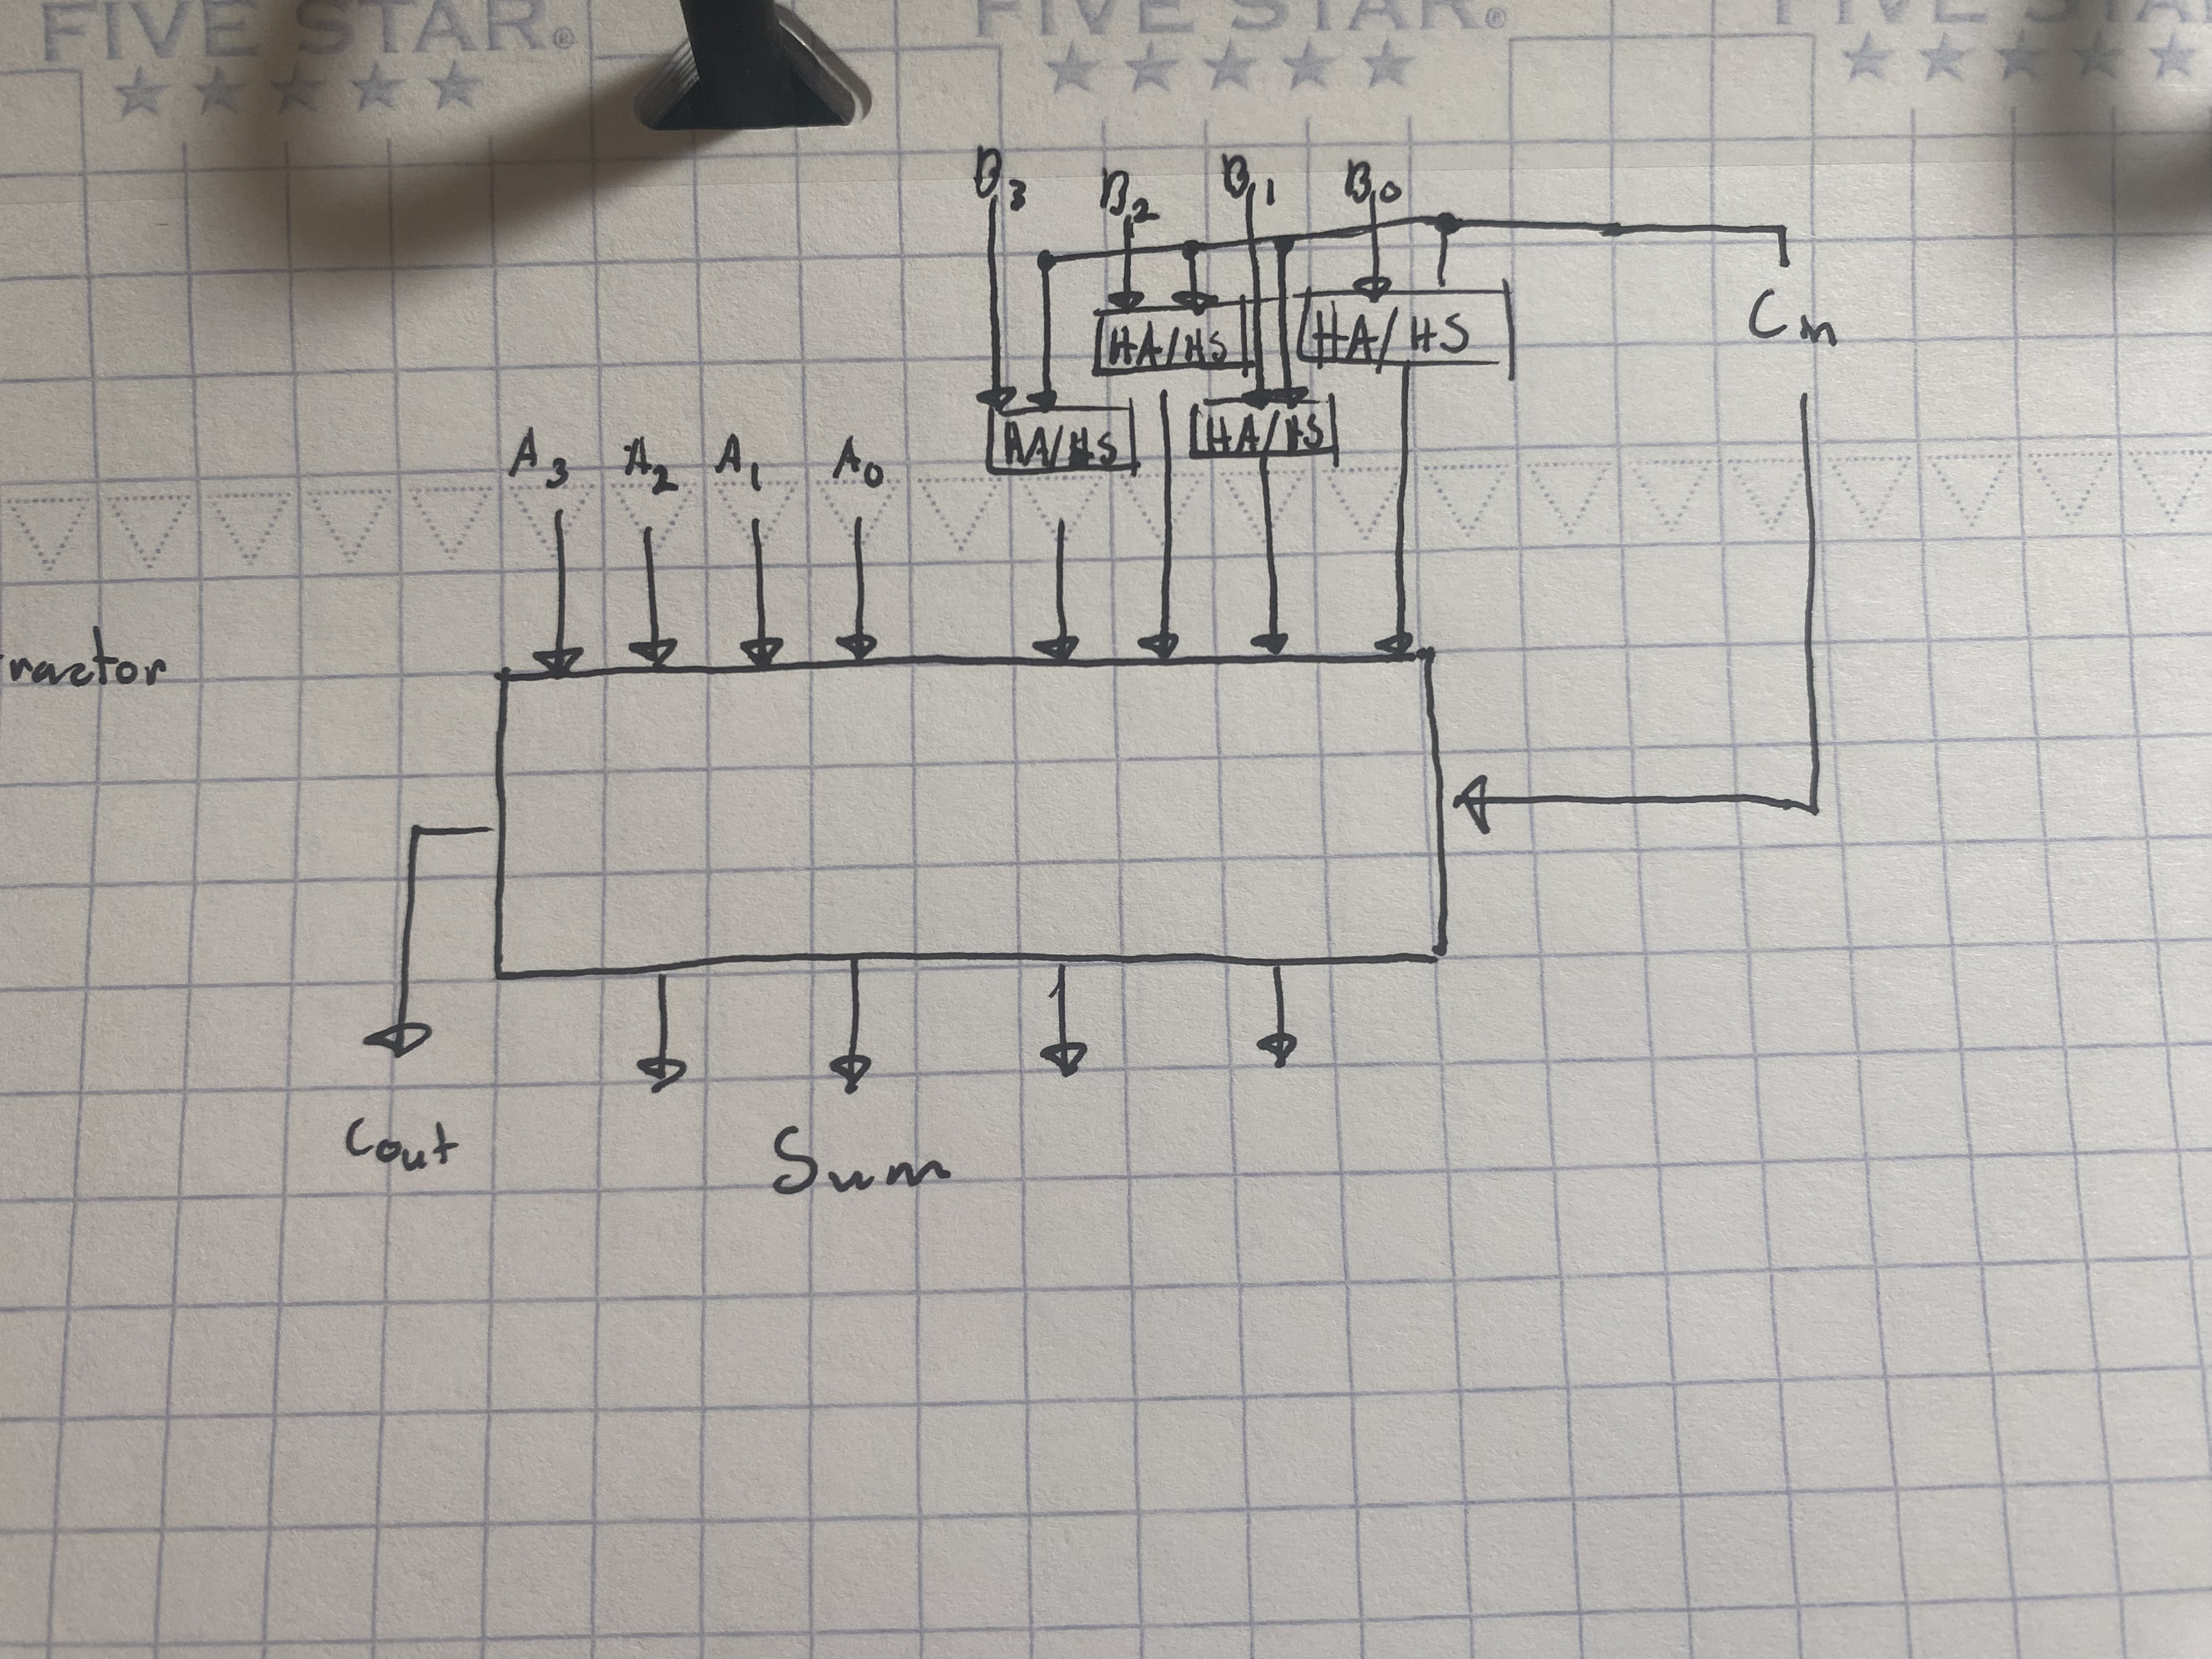 FIVE STAR®
FIVE STAR®
FIVE STAR
B3 B2 B1 B0
Cin
HA/HS HA/HS
HA/HS HA/HS
A3 A2 A1 A0
ractor
Cout
Sum